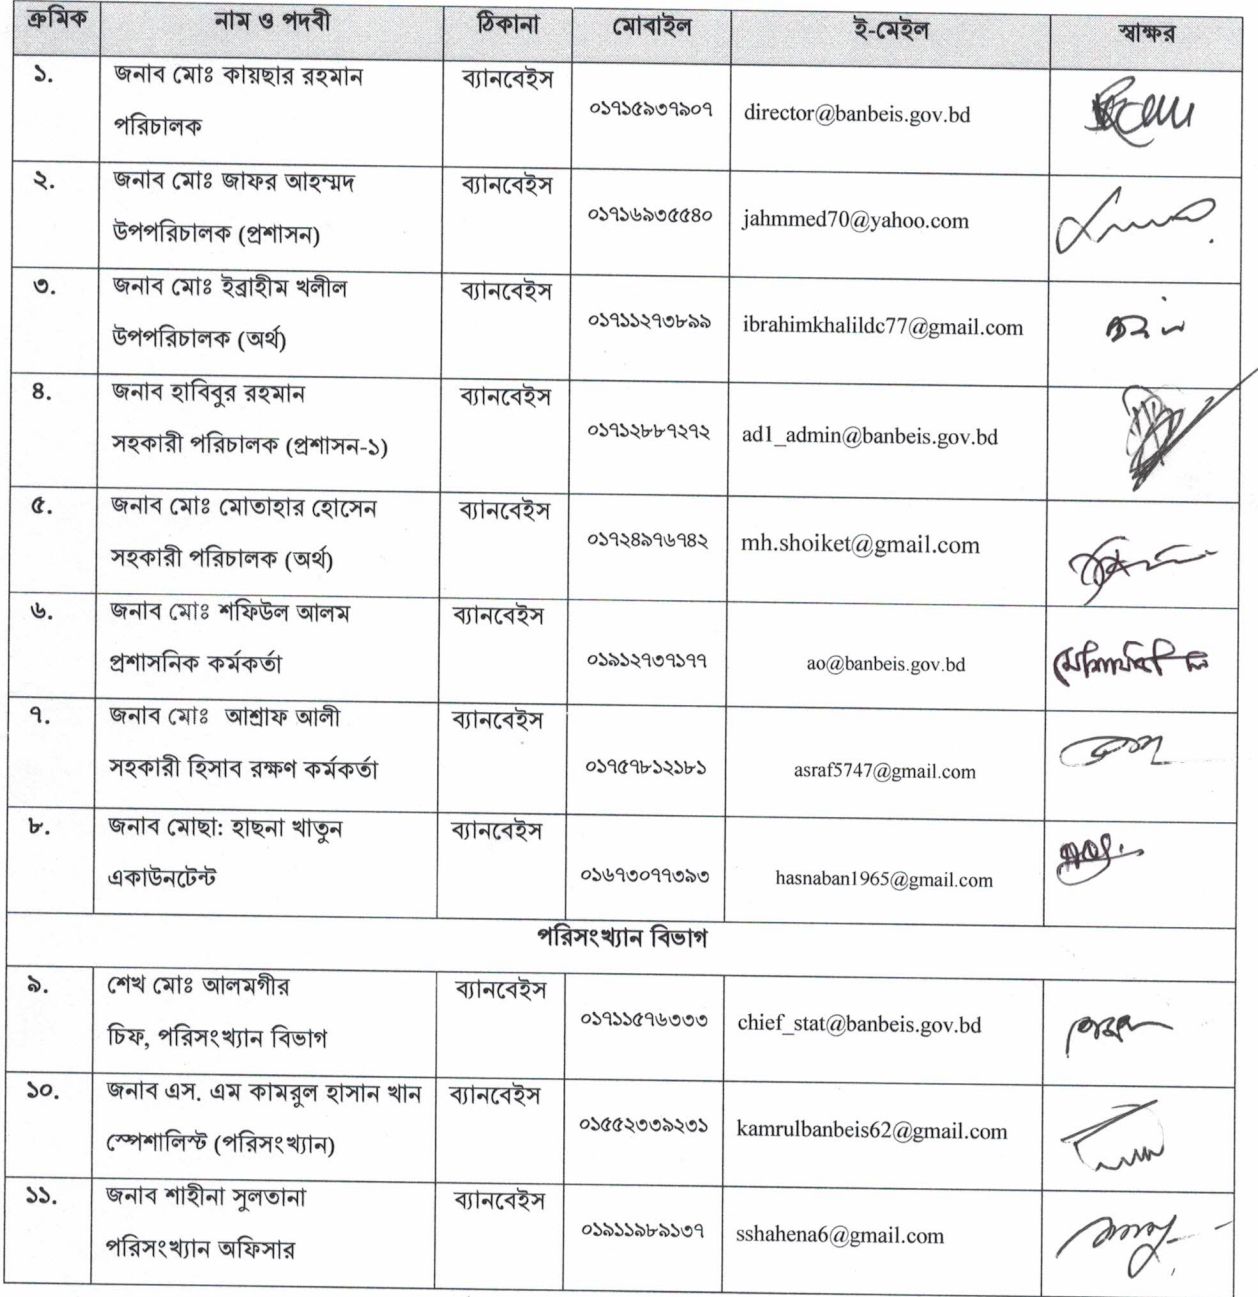 ক্রমিক নাম ও পদবী ঠিকানা মোবাইল ই-মেইল স্বাক্ষর
১. জনাব মোঃ কায়ছার রহমান ব্যানবেইস
পরিচালক ০১৭১৫৯৩৭৯০৭ director@banbeis.gov.bd
২. জনাব মোঃ জাফর আহম্মদ ব্যানবেইস
উপপরিচালক (প্রশাসন) ০১৭১৬৯৩৫৫৪০ jahmmed70@yahoo.com
৩. জনাব মোঃ ইব্রাহীম খলীল ব্যানবেইস
উপপরিচালক (অর্থ) ০১৭১১২৭৩৮৯৯ ibrahimkhalildc77@gmail.com
৪. জনাব হাবিবুর রহমান ব্যানবেইস
সহকারী পরিচালক (প্রশাসন-১) ০১৭১২৮৮৭২৭২ ad1_admin@banbeis.gov.bd
৫. জনাব মোঃ মোতাহার হোসেন ব্যানবেইস
সহকারী পরিচালক (অর্থ) ০১৭২৪৯৭৬৭৪২ mh.shoiket@gmail.com
৬. জনাব মোঃ শফিউল আলম ব্যানবেইস
প্রশাসনিক কর্মকর্তা ০১৯১২৭৩৭১৭৭ ao@banbeis.gov.bd
৭. জনাব মোঃ আশ্রাফ আলী ব্যানবেইস
সহকারী হিসাব রক্ষণ কর্মকর্তা ০১৭৫৭৮১২১৮১ asraf5747@gmail.com
৮. জনাব মোছা: হাছনা খাতুন ব্যানবেইস
একাউনটেন্ট ০১৬৭৩০৭৭৩৯৩ hasnaban1965@gmail.com
পরিসংখ্যান বিভাগ
৯. শেখ মোঃ আলমগীর ব্যানবেইস
চিফ, পরিসংখ্যান বিভাগ ০১৭১১৫৭৬৩৩৩ chief_stat@banbeis.gov.bd
১০. জনাব এস. এম কামরুল হাসান খান ব্যানবেইস
স্পেশালিস্ট (পরিসংখ্যান) ০১৫৫২৩৩৯২৩১ kamrulbanbeis62@gmail.com
১১. জনাব শাহীনা সুলতানা ব্যানবেইস
পরিসংখ্যান অফিসার ০১৯১১৯৮৯১৩৭ sshahena6@gmail.com